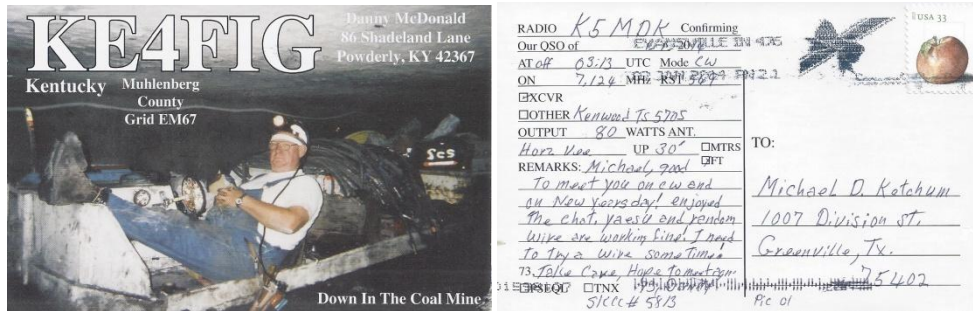 KE4FIG
Danny McDonald
86 Shadeland Lane
Powderly, KY 42367
Kentucky
Muhlenberg
County
Grid EM67
SCS
Down In The Coal Mine
RADIO K5MDK Confirming
Our QSO of
EVANSVILLE IN 476
AT off 03:13 UTC Mode CW
02 JAN 2004 PM 2 1
ON 7.124 MHz RST
XCVR
OTHER Kenwood Ts 570S
OUTPUT 80 WATTS ANT.
Horz Vee UP 30' MTRS
FT
REMARKS: Michael, good
To meet you on cw and
on New Years day! enjoyed
the chat. yaesu end random
wire are working fine. I need
to try a wire sometime
73, Take Care, Hope to meet agn
PSEQL TNX 73, Danny
SKCC # 5813
USA 33
TO:
Michael D. Ketchum
1007 Division st.
Greenville, Tx.
75402
Pic 01